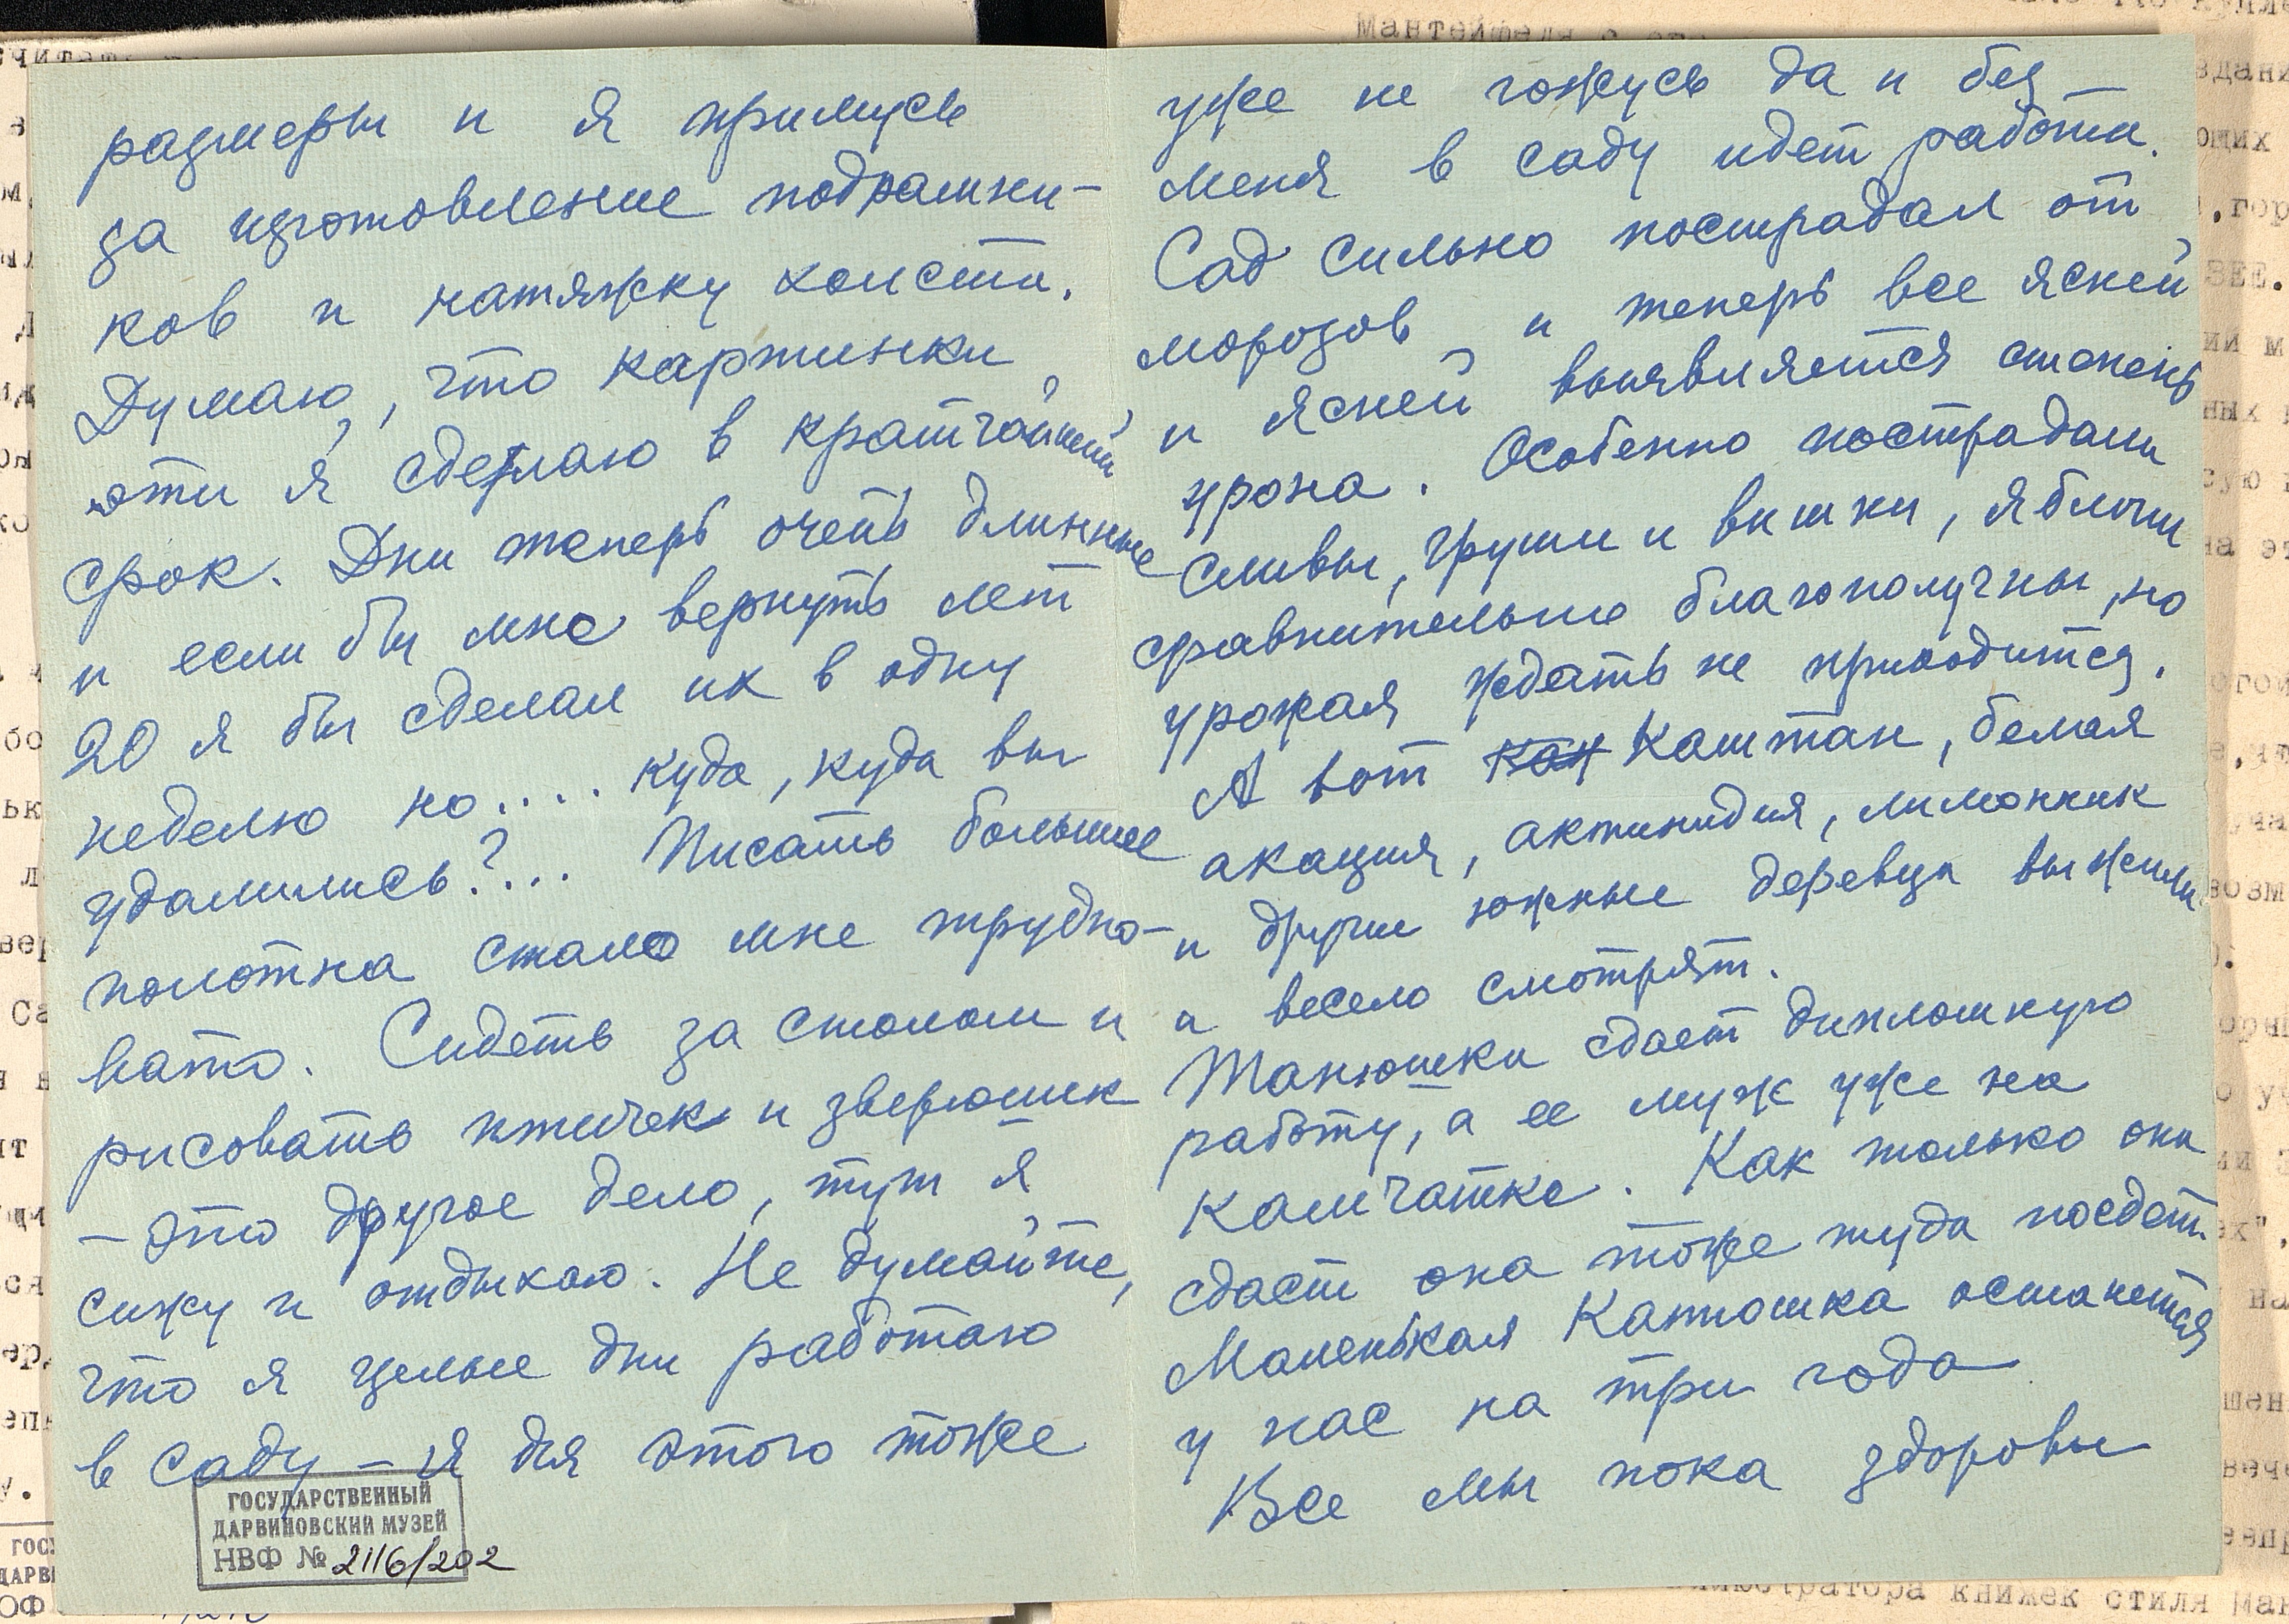 размеры и я примусь
за изготовление подрамни-
ков и натяжку холста.
Думаю, что картинки
эти я сделаю в кратчайший
срок. Дни теперь очень длинные
и если бы мне вернуть лет
20 я бы сделал их в одну
неделю но.... куда, куда вы
удалились?... Писать большие
полотна стало мне трудно-
вато. Сидеть за столом и
рисовать птичек и зверюшек
– это другое дело, тут я
сижу и отдыхаю. Не думайте,
что я целые дни работаю
в саду – я для этого тоже
ГОСУДАРСТВЕННЫЙ
ДАРВИНОВСКИЙ МУЗЕЙ
НВФ № 2116/202
уже не гожусь да и без
меня в саду идет работа.
Сад сильно пострадал от
морозов и теперь все ясней
и ясней выявляется степень
урона. Особенно пострадали
сливы, груши и вишни, яблони
сравнительно благополучны, но
урожая ждать не приходится.
А вот каш каштан, белая
акация, актинидия, лимонник
и другие южные деревца выжили
и весело смотрят.
Танюшка сдает дипломную
работу, а ее муж уже на
Камчатке. Как только она
сдаст она тоже туда поедет.
Маленькая Катюшка останется
у нас на три года
Все мы пока здоровы